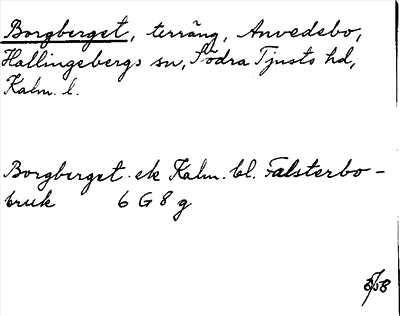 Borgberget, terräng, Anvedebo,
Hallingebergs sn, Södra Tjusts hd,
Kalm. l.
Borgberget. ek Kalm. bl. Falsterbo-
bruk 6 G 8 g